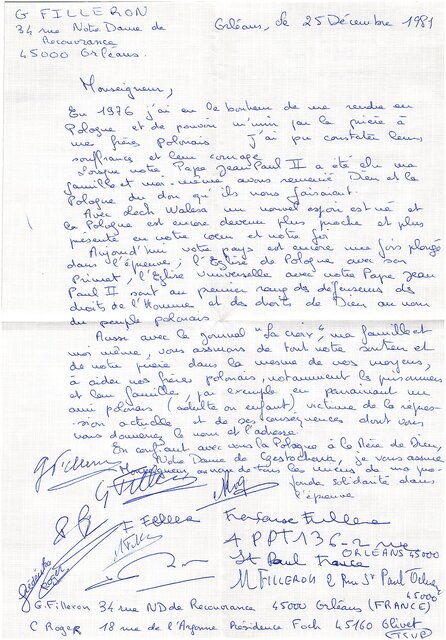 G FILLERON
34 rue Notre Dame de
Recouvrance
45000 Orléans.
Orléans, le 25 Décembre 1981
Monseigneur,
En 1976 j'ai eu le bonheur de me rendre en
Pologne et de pouvoir m'unir par la prière à
mes frères polonais. J'ai pu constater leurs
souffrance et leur courage.
Lorsque notre Pape Jean Paul II a été élu ma
famille et moi-même avons remercié Dieu et la
Pologne du don qu'ils nous faisaient.
Avec Lech Walesa un nouvel espoir est né et
la Pologne est encore devenue plus proche et plus
présente en notre cœur et notre foi
Aujourd'hui votre pays est encore une fois plongé
dans l'épreuve ; l'Eglise de Pologne avec son
Primat, l'Eglise Universelle avec notre Pape Jean
Paul II sont au premier rang des défenseurs des
droits de l'Homme et des droits de Dieu au nom
du peuple polonais
Aussi avec le journal "La croix", ma famille et
moi même, vous assurons de tout notre soutien et
de notre prière dans la mesure de nos moyens,
à aider nos frères polonais, notamment les prisonniers
et leur famille, par exemple en parrainant un
ami polonais (adulte ou enfant) victime de la répres-
sion actuelle et de ses conséquences dont vous
vous donnerez le nom et l'adresse.
En confiant avec vous la Pologne à la Mère de Dieu,
Notre Dame de Czestochowa, je vous assure
Monseigneur au nom de tous les miens de ma pro-
fonde solidarité dans
l'épreuve
G Filleron
G Filleron
F Filleron
Françoise Filleron
4 PPT 136-2 rue
St Paul France
ORLEANS 45000
M FILLERON 2 Rue St Paul Orléans
45000
G. Filleron 34 rue ND de Recouvrance 45000 Orléans (FRANCE)
C Roger 18 rue de l'Argonne Résidence Foch 45160 Olivet